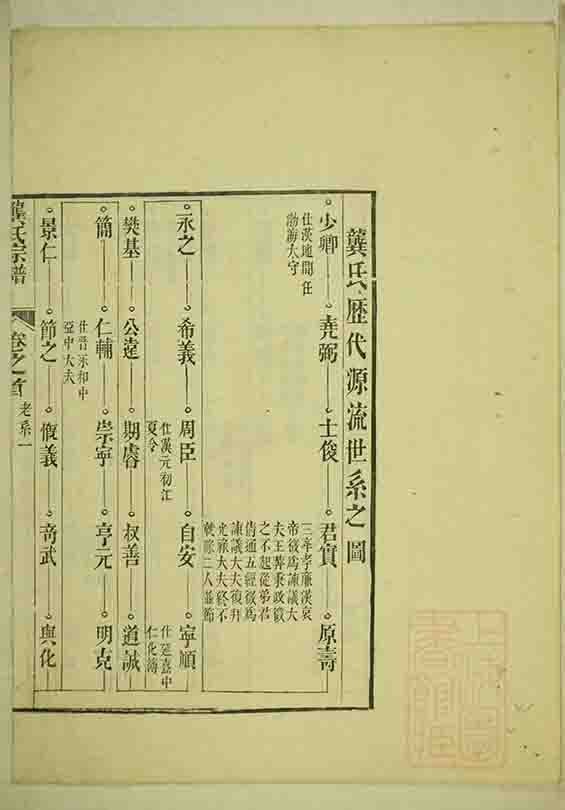 龔氏歷代源流世系之圖
少卿 堯弼 士俊 君實 原壽
仕漢地間任
渤海太守
三年孝廉漢哀
帝徵爲諫議大
夫王莽秉政徵
之不起從弟君
倩通五經徵爲
諫議大夫復拜
光祿大夫終不
就祿二人並節
永之 希義 周臣 自安 寧順
仕漢元初江
夏令
仕延熹中
仁化簿
樊基 公遠 期睿 叔善 道誠
簡 仁輔 崇寧 亨元 明克
仕晉永和中
亞中大夫
景仁 節之 復義 奇武 興化
龔氏宗譜 卷之首 老系一